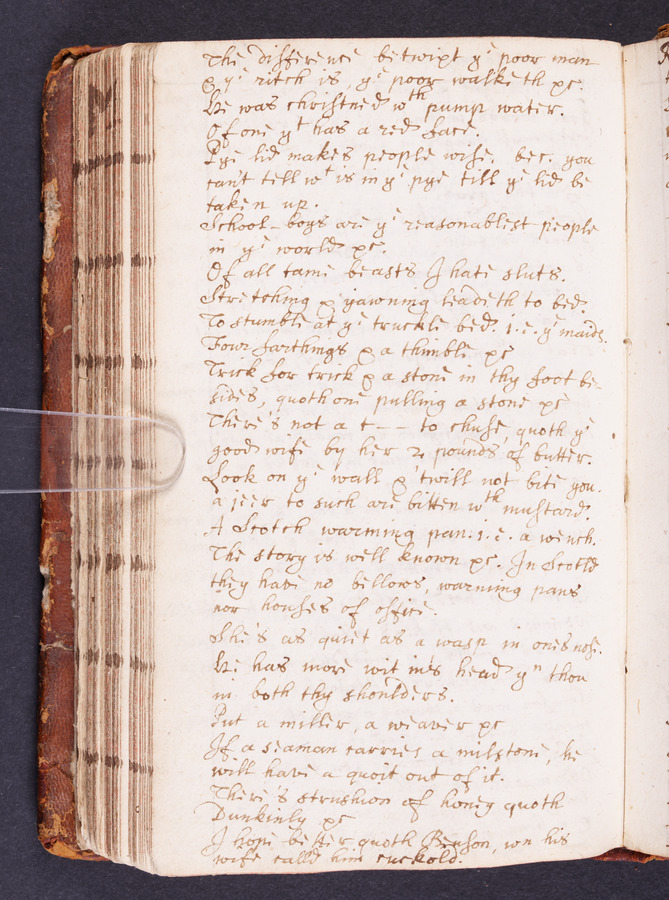 The difference betwixt yᵉ poor man
& yᵉ ritch is, yᵉ poor walketh &c.
He was christned wᵗʰ pump water.
Of one yᵗ has a red face.
Pye lid makes people wise. bec. you
can't tell wᵗ is in yᵉ pye till yᵉ lid be
taken up.
School-boys are yᵉ reasonablest people
in yᵉ world &c.
Of all tame beasts I hate sluts.
Stretching & yawning leadeth to bed.
To stumble at yᵉ truckle bed. i.e. yᵉ maids.
Four farthings & a thimble &c
Trick for trick & a stone in thy foot be-
sides, quoth one pulling a stone &c
There's not a t-- to chuse, quoth yᵉ
good wife by her 2 pounds of butter.
Look on yᵉ wall & 'twill not bite you.
a jeer to such are bitten wᵗʰ mustard.
A Scotch warming pan. i.e. a wench.
The story is well known &c. In Scotld
they have no bellows, warming pans
nor houses of office.
She's as quiet as a wasp in ones nose.
He has more wit in's head yⁿ thou
in both thy shoulders.
Put a miller, a weaver &c
If a seaman carries a milstone, he
will have a quoit out of it.
There's strushion of honey quoth
Dunkinly &c
I hope better quoth Benson, wn his
wife calld him cuckold.
M